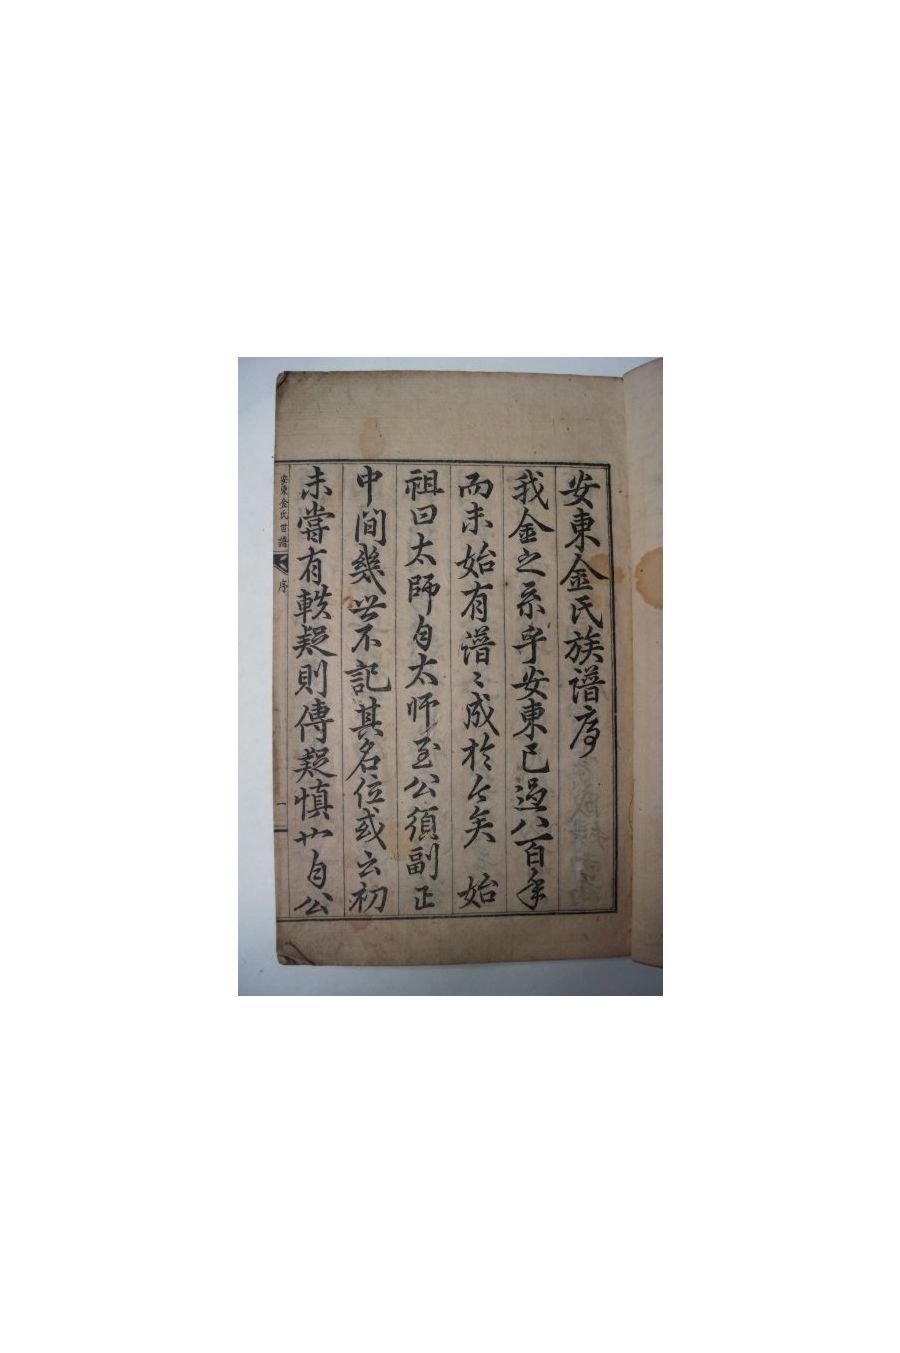 安東金氏族譜序
我金之系乎安東已過八百年
而未始有譜〻成於今矣始
祖曰太師自太师至公須副正
中間幾世不記其名位或云初
未嘗有軼疑則傳疑慎也自公
安東金氏世譜
序
一